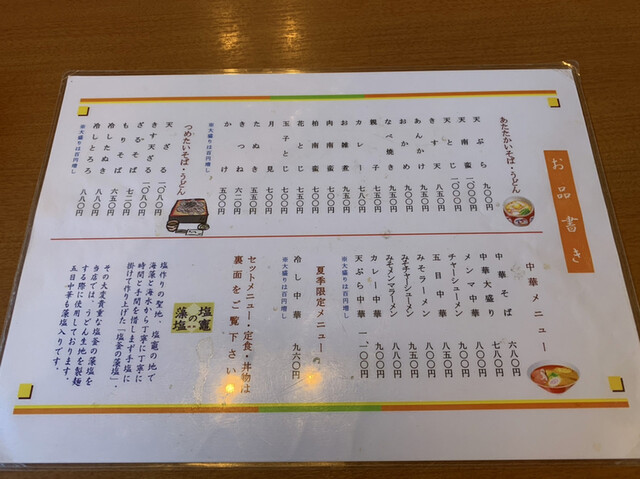 お品書き
あたたかいそば・うどん
天ぷら 九〇〇円
天南蛮 一〇〇〇円
天とじ 一〇〇〇円
きす天 八五〇円
あんかけ 九五〇円
おかめ 九五〇円
なべ焼き 九五〇円
親子 七五〇円
カレー 七五〇円
お雑煮 九五〇円
肉南蛮 七〇〇円
柏南蛮 七〇〇円
花とじ 七五〇円
玉子とじ 七〇〇円
月見 七〇〇円
たぬき 五五〇円
きつね 六二〇円
かけ 五〇〇円
※大盛りは百円増し
つめたいそば・うどん
天ざる 一〇八〇円
きす天ざる 一〇八〇円
ざるそば 七二〇円
もりそば 六五〇円
冷したぬき 八八〇円
冷しとろろ 八八〇円
※大盛りは百円増し
中華メニュー
中華そば 六八〇円
中華大盛り 七八〇円
メンマ中華 八八〇円
チャーシューメン 九五〇円
五目中華 九五〇円
みそラーメン 八八〇円
みそチャーシューメン 九五〇円
みそメンマラーメン 八八〇円
カレー中華 九五〇円
天ぷら中華 一一、〇〇円
※大盛りは百円増し
夏季限定メニュー
冷し中華 九六〇円
※大盛りは百円増し
セットメニュー・定食・丼物は
裏面をご覧下さい
塩竈
の
藻塩
塩作りの聖地、塩竈の地で
海藻と海水から丁寧に丁寧に
時間と手間を惜しまず手塩に
掛けて作り上げた「塩釜の藻塩」。
その大変貴重な塩釜の藻塩を
当店では、うどん生地を製麺
する際に使用しております。
五目中華も藻塩入りです。